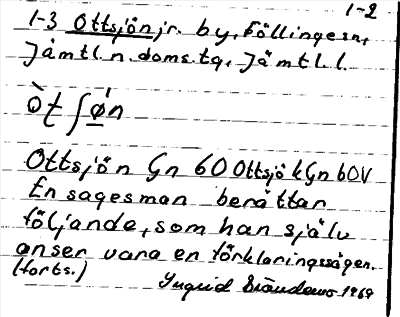 1-2
1-3 Ottsjön jr. by, Föllinge sn,
Jämtl. n. doms. tg, Jämtl. l.
òt ʃøn
Ottsjön Gn 60 Ottsjö k Gn 60V
En sagesman berättar
följande, som han själv
anser vara en förklaringssägen.
(forts.) Ingrid 1969